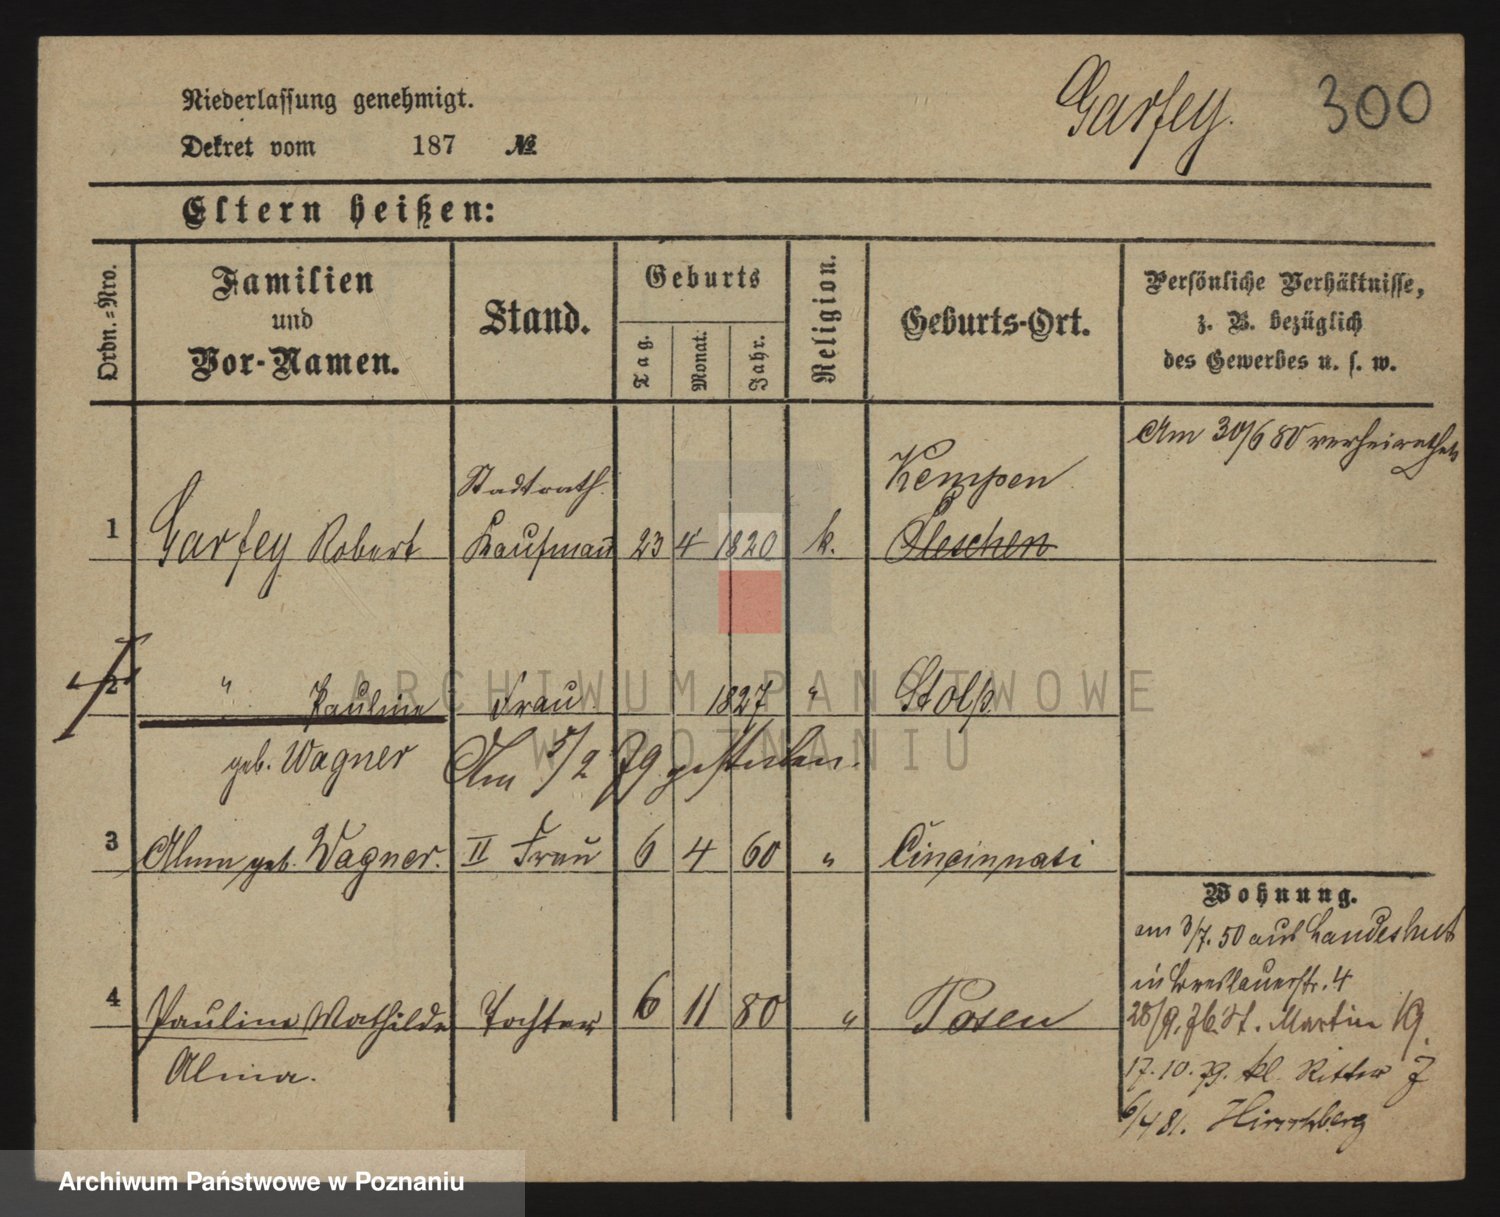 Niederlassung genehmigt.
Dekret vom 187 №
Garfey. 300
Eltern heißen:
Ordn.=Nro.
Familien
und
Vor-Namen.
Stand.
Geburts
Tag.
Monat.
Jahr.
Religion.
Geburts-Ort.
Persönliche Verhältnisse,
z. B. bezüglich
des Gewerbes u. s. w.
Am 30/6 80 verheirathet
Stadtrath. Kempen
1 Garfey Robert Kaufmann 23 4 1820 k. Pleschen
2 " Pauline Frau 1827 " Stolp
geb. Wagner Am 5/2 79 gestorben.
3 Alma geb. Wagner. II Frau 6 4 60 " Cincinnati
4 Pauline Mathilde Tochter 6 11 80 " Posen
Alma.
Wohnung.
am 3/7. 50 aus Landeshut
in Breslauerstr. 4
28/9. 76. St. Martin 19.
17. 10. 79. kl. Ritter 7
6/4 81. Hirschberg
ARCHIWUM PAŃSTWOWE
W POZNANIU
Archiwum Państwowe w Poznaniu